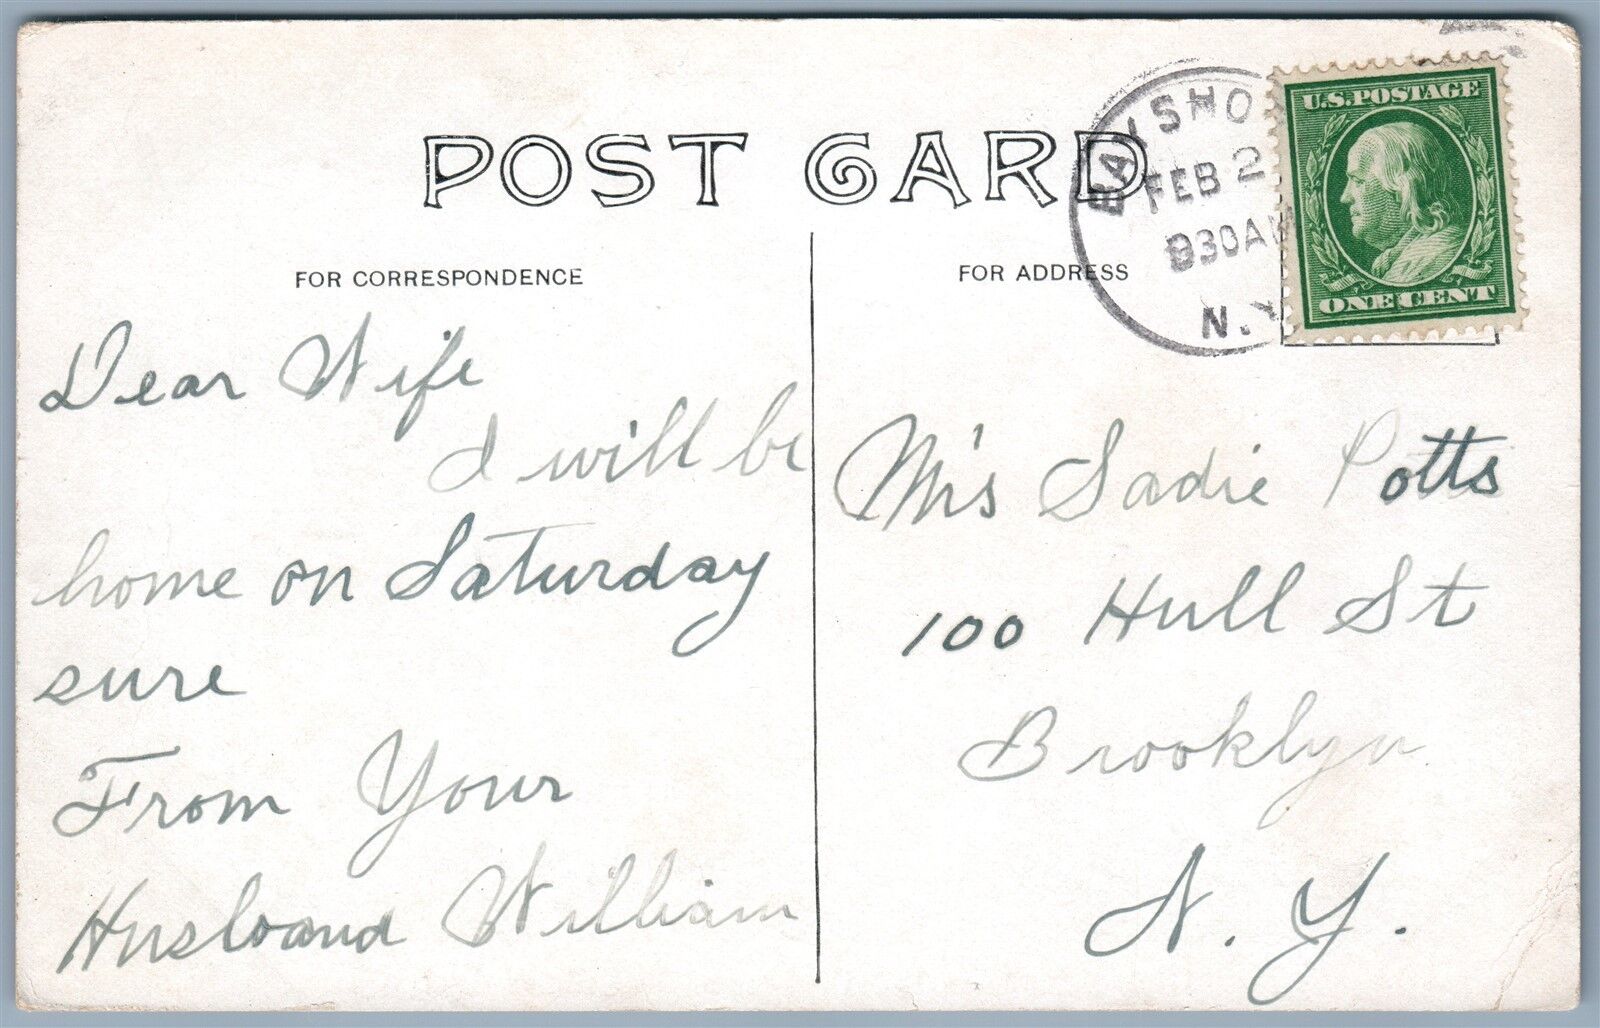 POST CARD
FOR CORRESPONDENCE
FOR ADDRESS
BAY SHO
FEB 2
930AM
N.Y
U.S. POSTAGE
ONE CENT
Dear Wife
I will be
home on Saturday
sure
From Your
Husband William
Mrs Sadie Potts
100 Hull St
Brooklyn
N. Y.